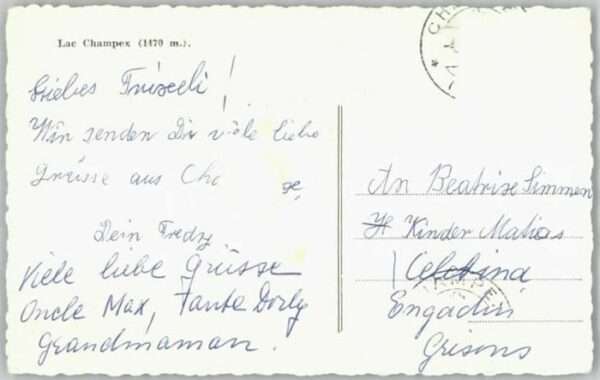 Lac Champex (1470 m.).
Liebes Friseeli!
Wir senden Dir viele liebe
Grüsse aus Ch
Dein Fredy
Viele liebe Grüsse
Oncle Max, Tante Dorly
Grandmaman.
CH
An Beatrise Simmen
Kinder
Celerina
Engadin
Grisons